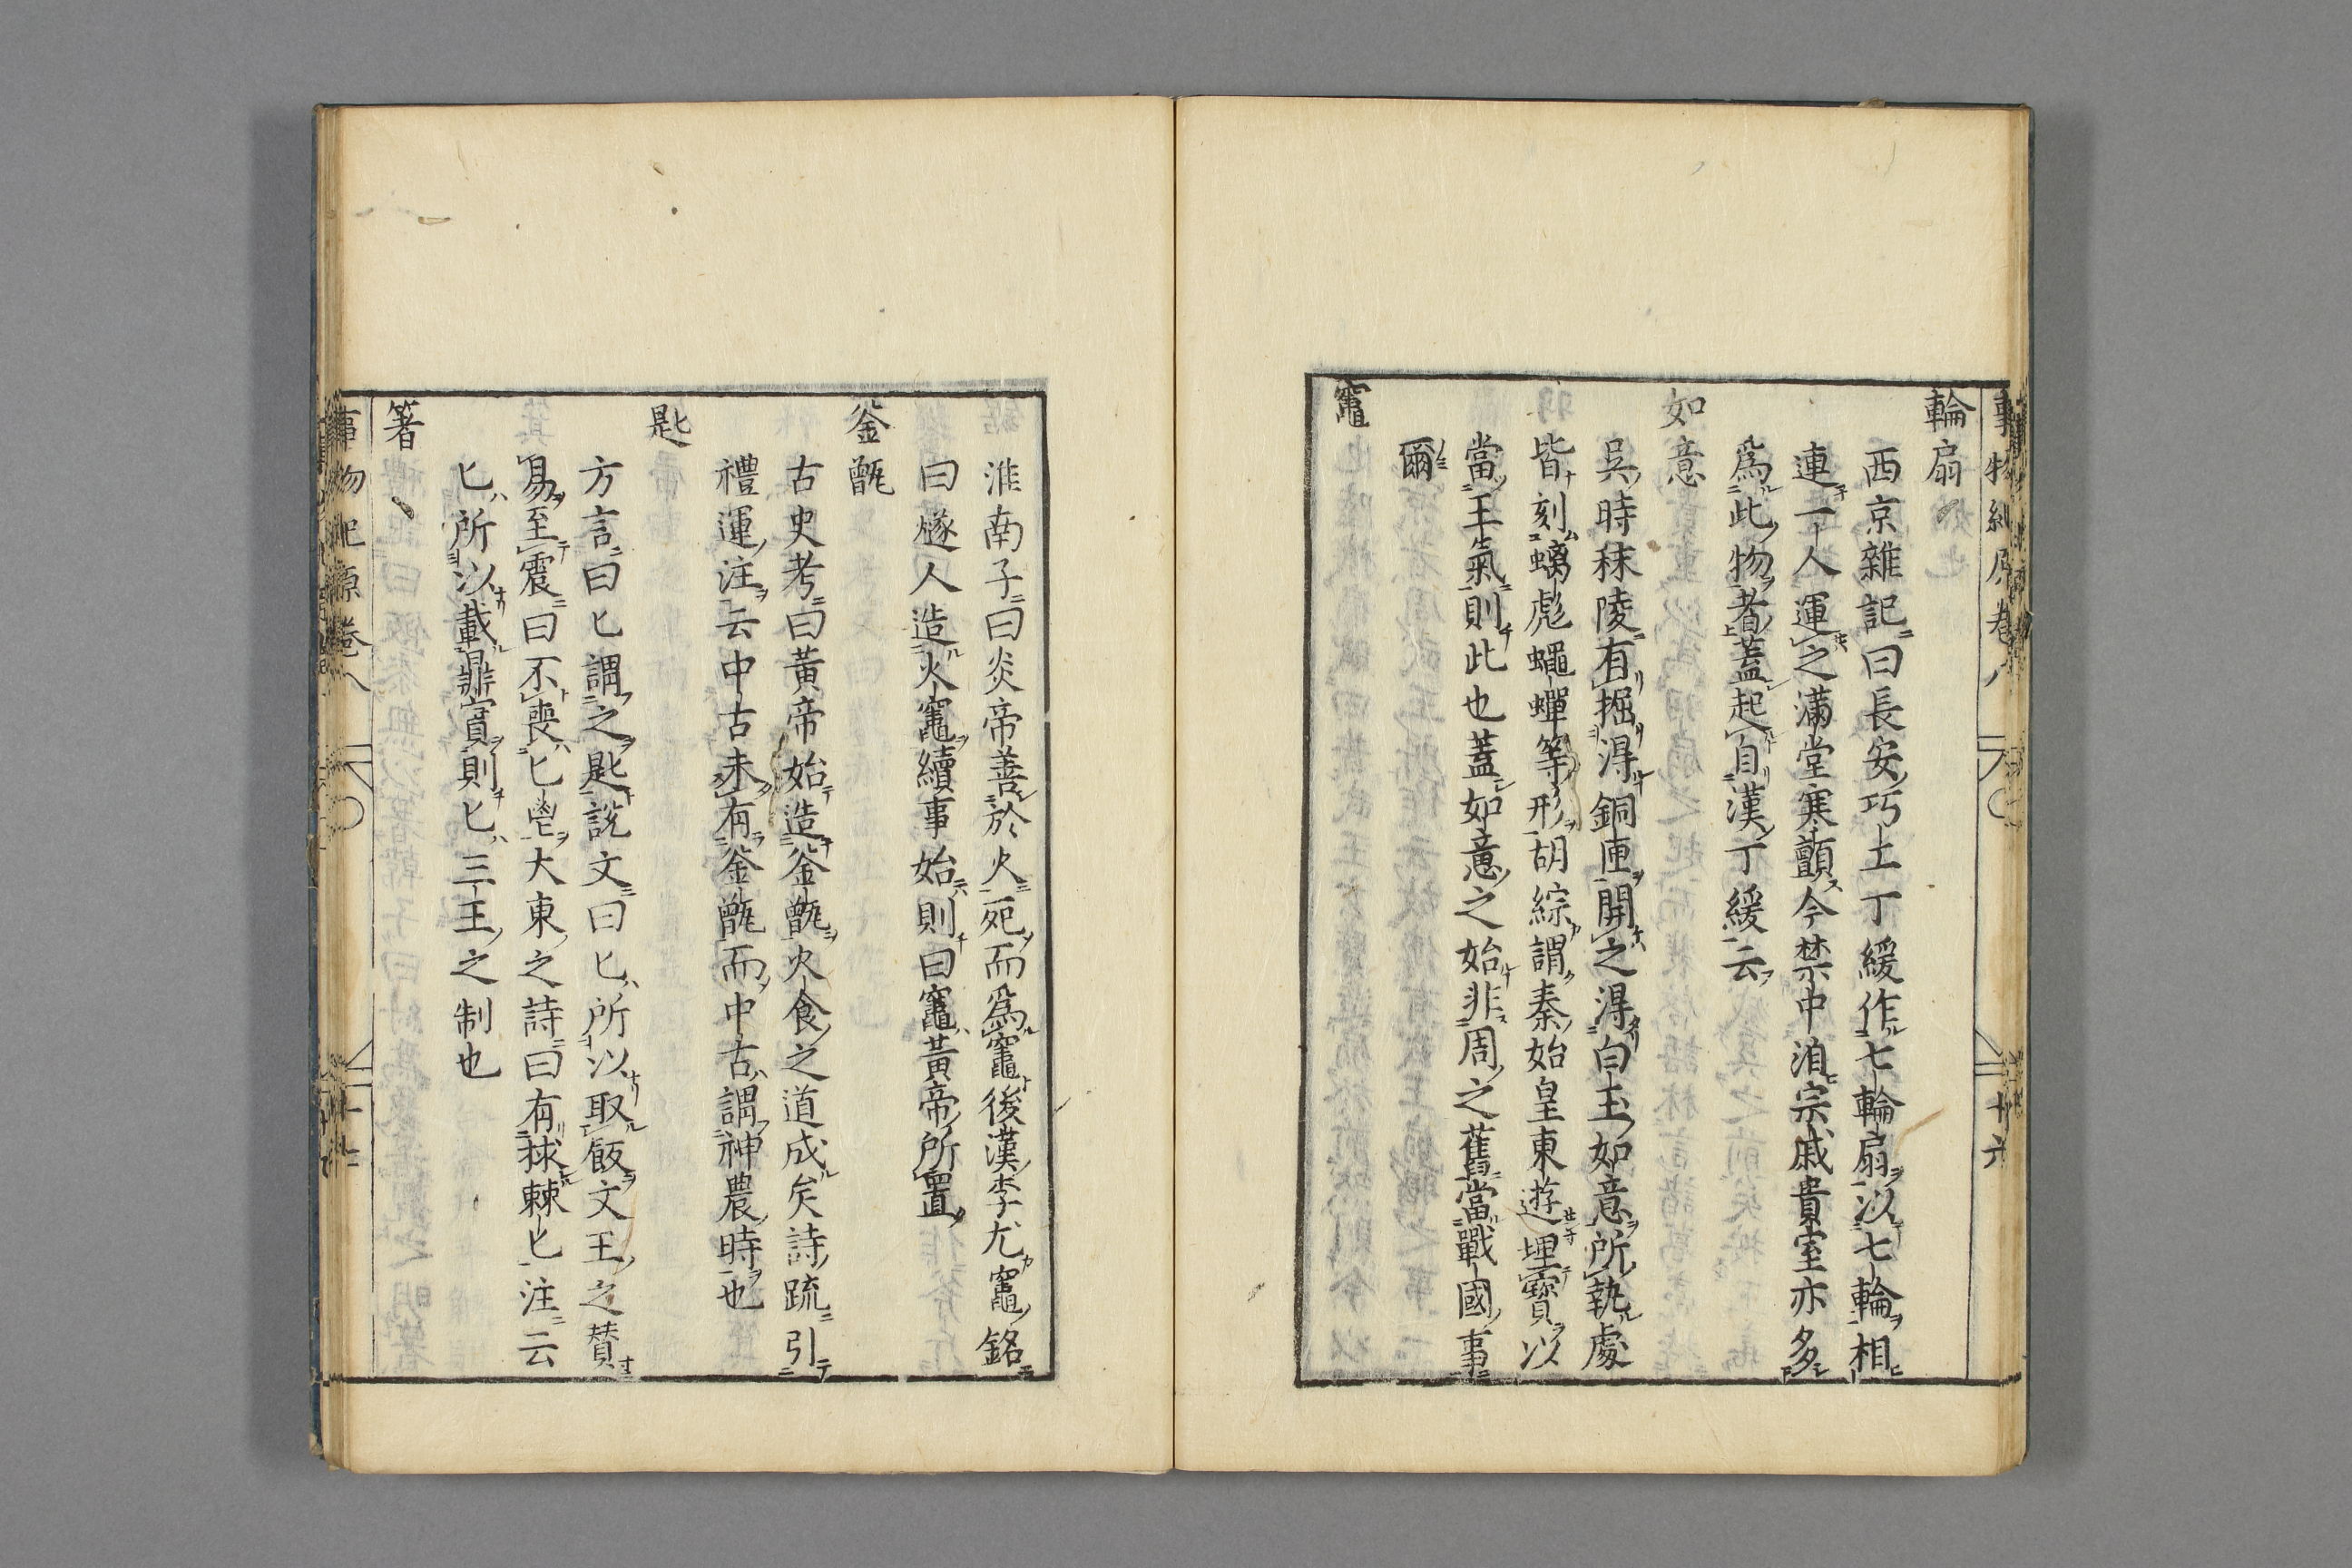 事物紀原卷八 十六
輪扇
西京雜記曰長安巧工丁緩作七輪扇以七輪相
連一人運之滿堂寒顫今禁中洎宗戚貴室亦多
爲此物者蓋起自漢丁緩云
如意
吳時秣陵有掘得銅匣開之得白玉如意所執處
皆刻螭彪蠅蟬等形胡綜謂秦始皇東遊埋寶以
當王氣則此也蓋如意之始非周之舊當戰國事
爾
竈
淮南子曰炎帝善於火死而爲竈後漢李尤竈銘
曰燧人造火竈續事始則曰竈黃帝所置
釜甑
古史考曰黃帝始造釜甑火食之道成矣詩疏引
禮運注云中古未有釜甑而中古謂神農時也
匙
方言曰匕謂之匙說文曰匕所以取飯文王之贊
易至震曰不喪匕鬯大東之詩曰有捄棘匕注云
匕所以載鼎實則匕三王之制也
箸
事物紀原卷八 十七